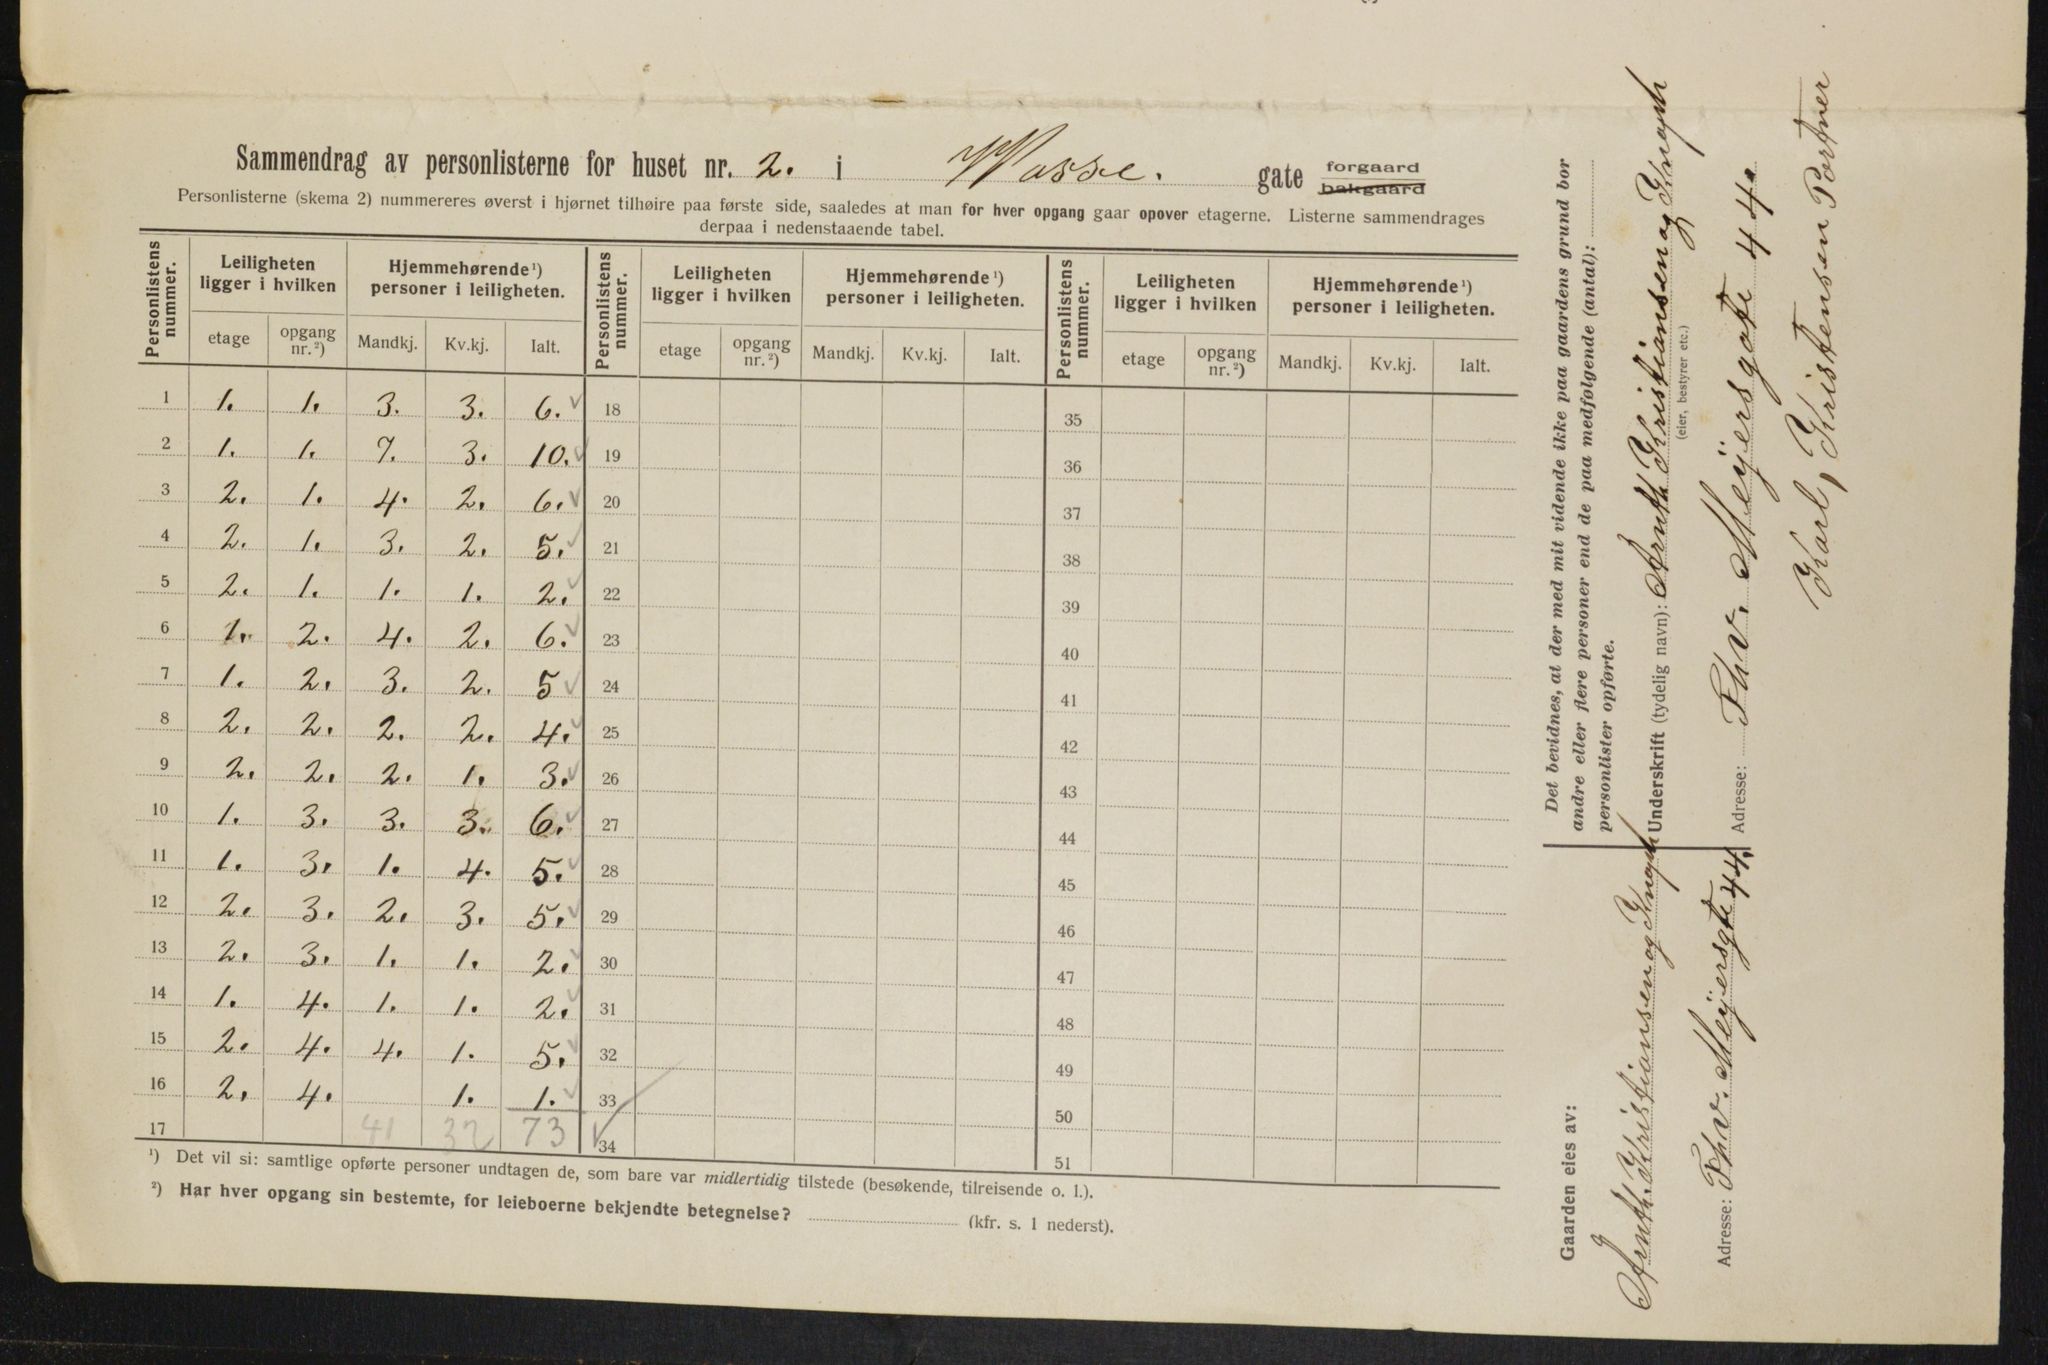 Sammendrag av personlisterne for huset nr. 2. i Wosse. gate forgaard
bakgaard
Personlisterne (skema 2) nummereres øverst i hjørnet tilhøire paa første side, saaledes at man for hver opgang gaar opover etagerne. Listerne sammendrages
derpaa i nedenstaaende tabel.
Personlistens nummer. Leiligheten ligger i hvilken Hjemmehørende ¹) personer i leiligheten. Personlistens nummer. Leiligheten ligger i hvilken Hjemmehørende ¹) personer i leiligheten. Personlistens nummer. Leiligheten ligger i hvilken Hjemmehørende ¹) personer i leiligheten.
etage opgang nr.²) Mandkj. Kv.kj. Ialt. etage opgang nr.²) Mandkj. Kv.kj. Ialt. etage opgang nr.²) Mandkj. Kv.kj. Ialt.
1 1. 1. 3. 3. 6. ✓ 18 35
2 1. 1. 7. 3. 10. ✓ 19 36
3 2. 1. 4. 2. 6. ✓ 20 37
4 2. 1. 3. 2. 5. ✓ 21 38
5 2. 1. 1. 1. 2. ✓ 22 39
6 1. 2. 4. 2. 6. ✓ 23 40
7 1. 2. 3. 2. 5 ✓ 24 41
8 2. 2. 2. 2. 4. ✓ 25 42
9 2. 2. 2. 1. 3. ✓ 26 43
10 1. 3. 3. 3. 6. ✓ 27 44
11 1. 3. 1. 4. 5. ✓ 28 45
12 2. 3. 2. 3. 5. ✓ 29 46
13 2. 3. 1. 1. 2. ✓ 30 47
14 1. 4. 1. 1. 2. ✓ 31 48
15 2. 4. 4. 1. 5. ✓ 32 49
16 2. 4. 1. 1. ✓ 33 50
17 41 32 73 ✓ 34 51
¹) Det vil si: samtlige opførte personer undtagen de, som bare var midlertidig tilstede (besøkende, tilreisende o. l.).
²) Har hver opgang sin bestemte, for leieboerne bekjendte betegnelse? (kfr. s. 1 nederst).
Det bevidnes, at der med mit vidende ikke paa gaardens grund bor
andre eller flere personer end de paa medfølgende (antal):
personlister opførte.
Underskrift (tydelig navn): Arnth. Kristiansen og Knoph
(eier, bestyrer etc.)
Adresse: Thv. Meÿersgate 44.
Karl, Kristensen Portner
Gaarden eies av:
Arnth. Kristiansen og Knoph
Adresse: Thv. Meÿersgte 44.